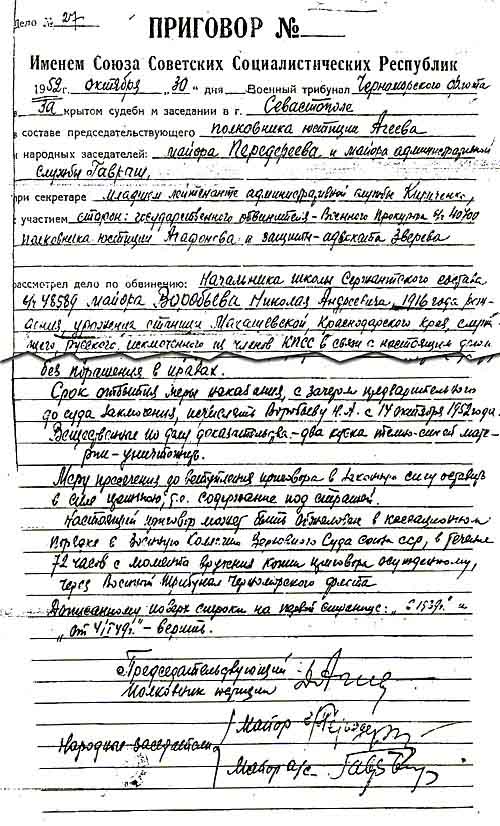 Дело № 27
ПРИГОВОР №
Именем Союза Советских Социалистических Республик
1952 г. октября „30" дня Военный трибунал Черноморского Флота
в закрытом судебн м заседании в г. Севастополе
в составе председательствующего полковника юстиции Агеева
и народных заседателей: майора Передереева и майора административной
службы Гавриш,
при секретаре младшем лейтенанте административной службы Кириченко,
с участием сторон: государственного обвинителя - Военного Прокурора 40700
полковника юстиции Агафонова и защиты - адвоката Зверева
рассмотрел дело по обвинению: Начальника школы Сержантского состава
в/ч 48589 майора Воробьева Николая Андреевича, 1916 года рож-
дения, уроженца станицы Махошевской, Краснодарского края, служа-
щего, русского, исключенного из членов КПСС в связи с настоящим делом
без поражения в правах.
Срок отбытия меры наказания, с зачетом предварительного
до суда заключения, исчислять Воробьеву Н.А. с 14 октября 1952 года.
Вещественные по делу доказательства - два куска темно-синей мате-
рии - уничтожить.
Меру пресечения до вступления приговора в законную силу оставить
в силе прежнюю, т.о. содержание под стражей.
Настоящий приговор может быть обжалован в кассационном
порядке в Военную Коллегию Верховного Суда Союза ССР, в течение
72 часов с момента вручения копии приговора осужденному,
через Военный Трибунал Черноморского флота
Дописанному поверх строки на первой странице: „с 1939г." и
„от 4/I 49г." - верить.
Председательствующий
полковник юстиции Агеев
Народные заседатели
Майор
Майор а/с Гавриш